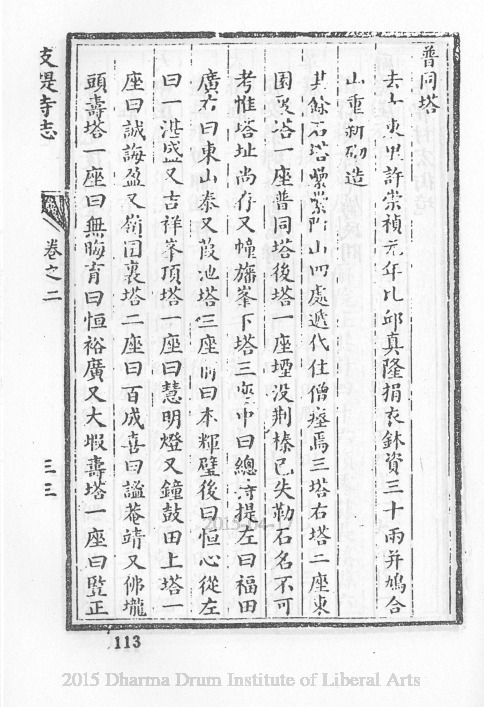 普同塔
去寺東里許崇禎元年比邱真隆捐衣鉢資三十兩并鳩合
山重新砌造
其餘石塔纍纍附山四處遞代住僧瘞焉三塔右塔二座東
園叟塔一座普同塔後塔一座堙没荆榛已失勒石名不可
考惟塔址尚存又幢旛峯下塔三座中曰總持提左曰福田
廣右曰東山泰又葭池塔三座前曰本輝璧後曰恒心從左
曰一湛盛又吉祥峯頂塔一座曰慧明燈又鐘鼓田上塔一
座曰誠誨盈又嶺囘裏塔二座曰百成喜曰謐菴靖又佛壠
頭壽塔一座曰無晦育曰恒裕廣又大嘏壽塔一座曰正
支提寺志
卷之二
三三
113
2015 Dharma Drum Institute of Liberal Arts